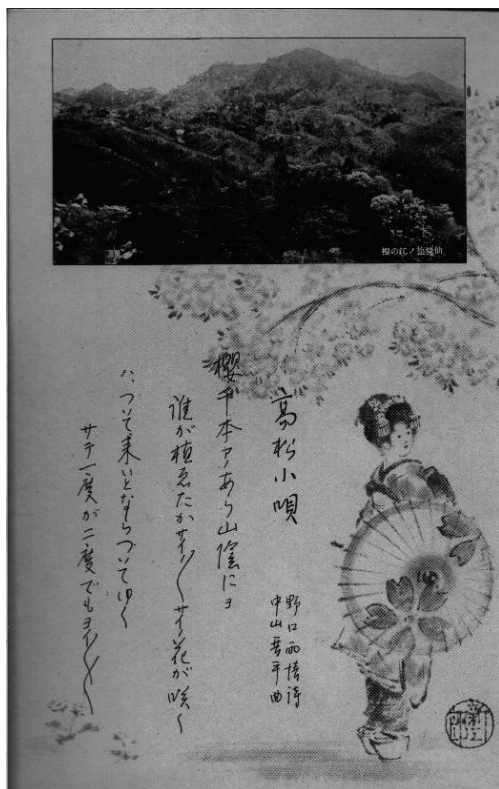 仙境塩ノ江の櫻
高松小唄
野口雨情詩
中山晋平曲
櫻千本ア 山陰にヨ
誰が植ゑたかサイ〱サイ花が咲く
ハ、ついて来いとならついてゆく
サテ一度が二度でもヨイ〱〱